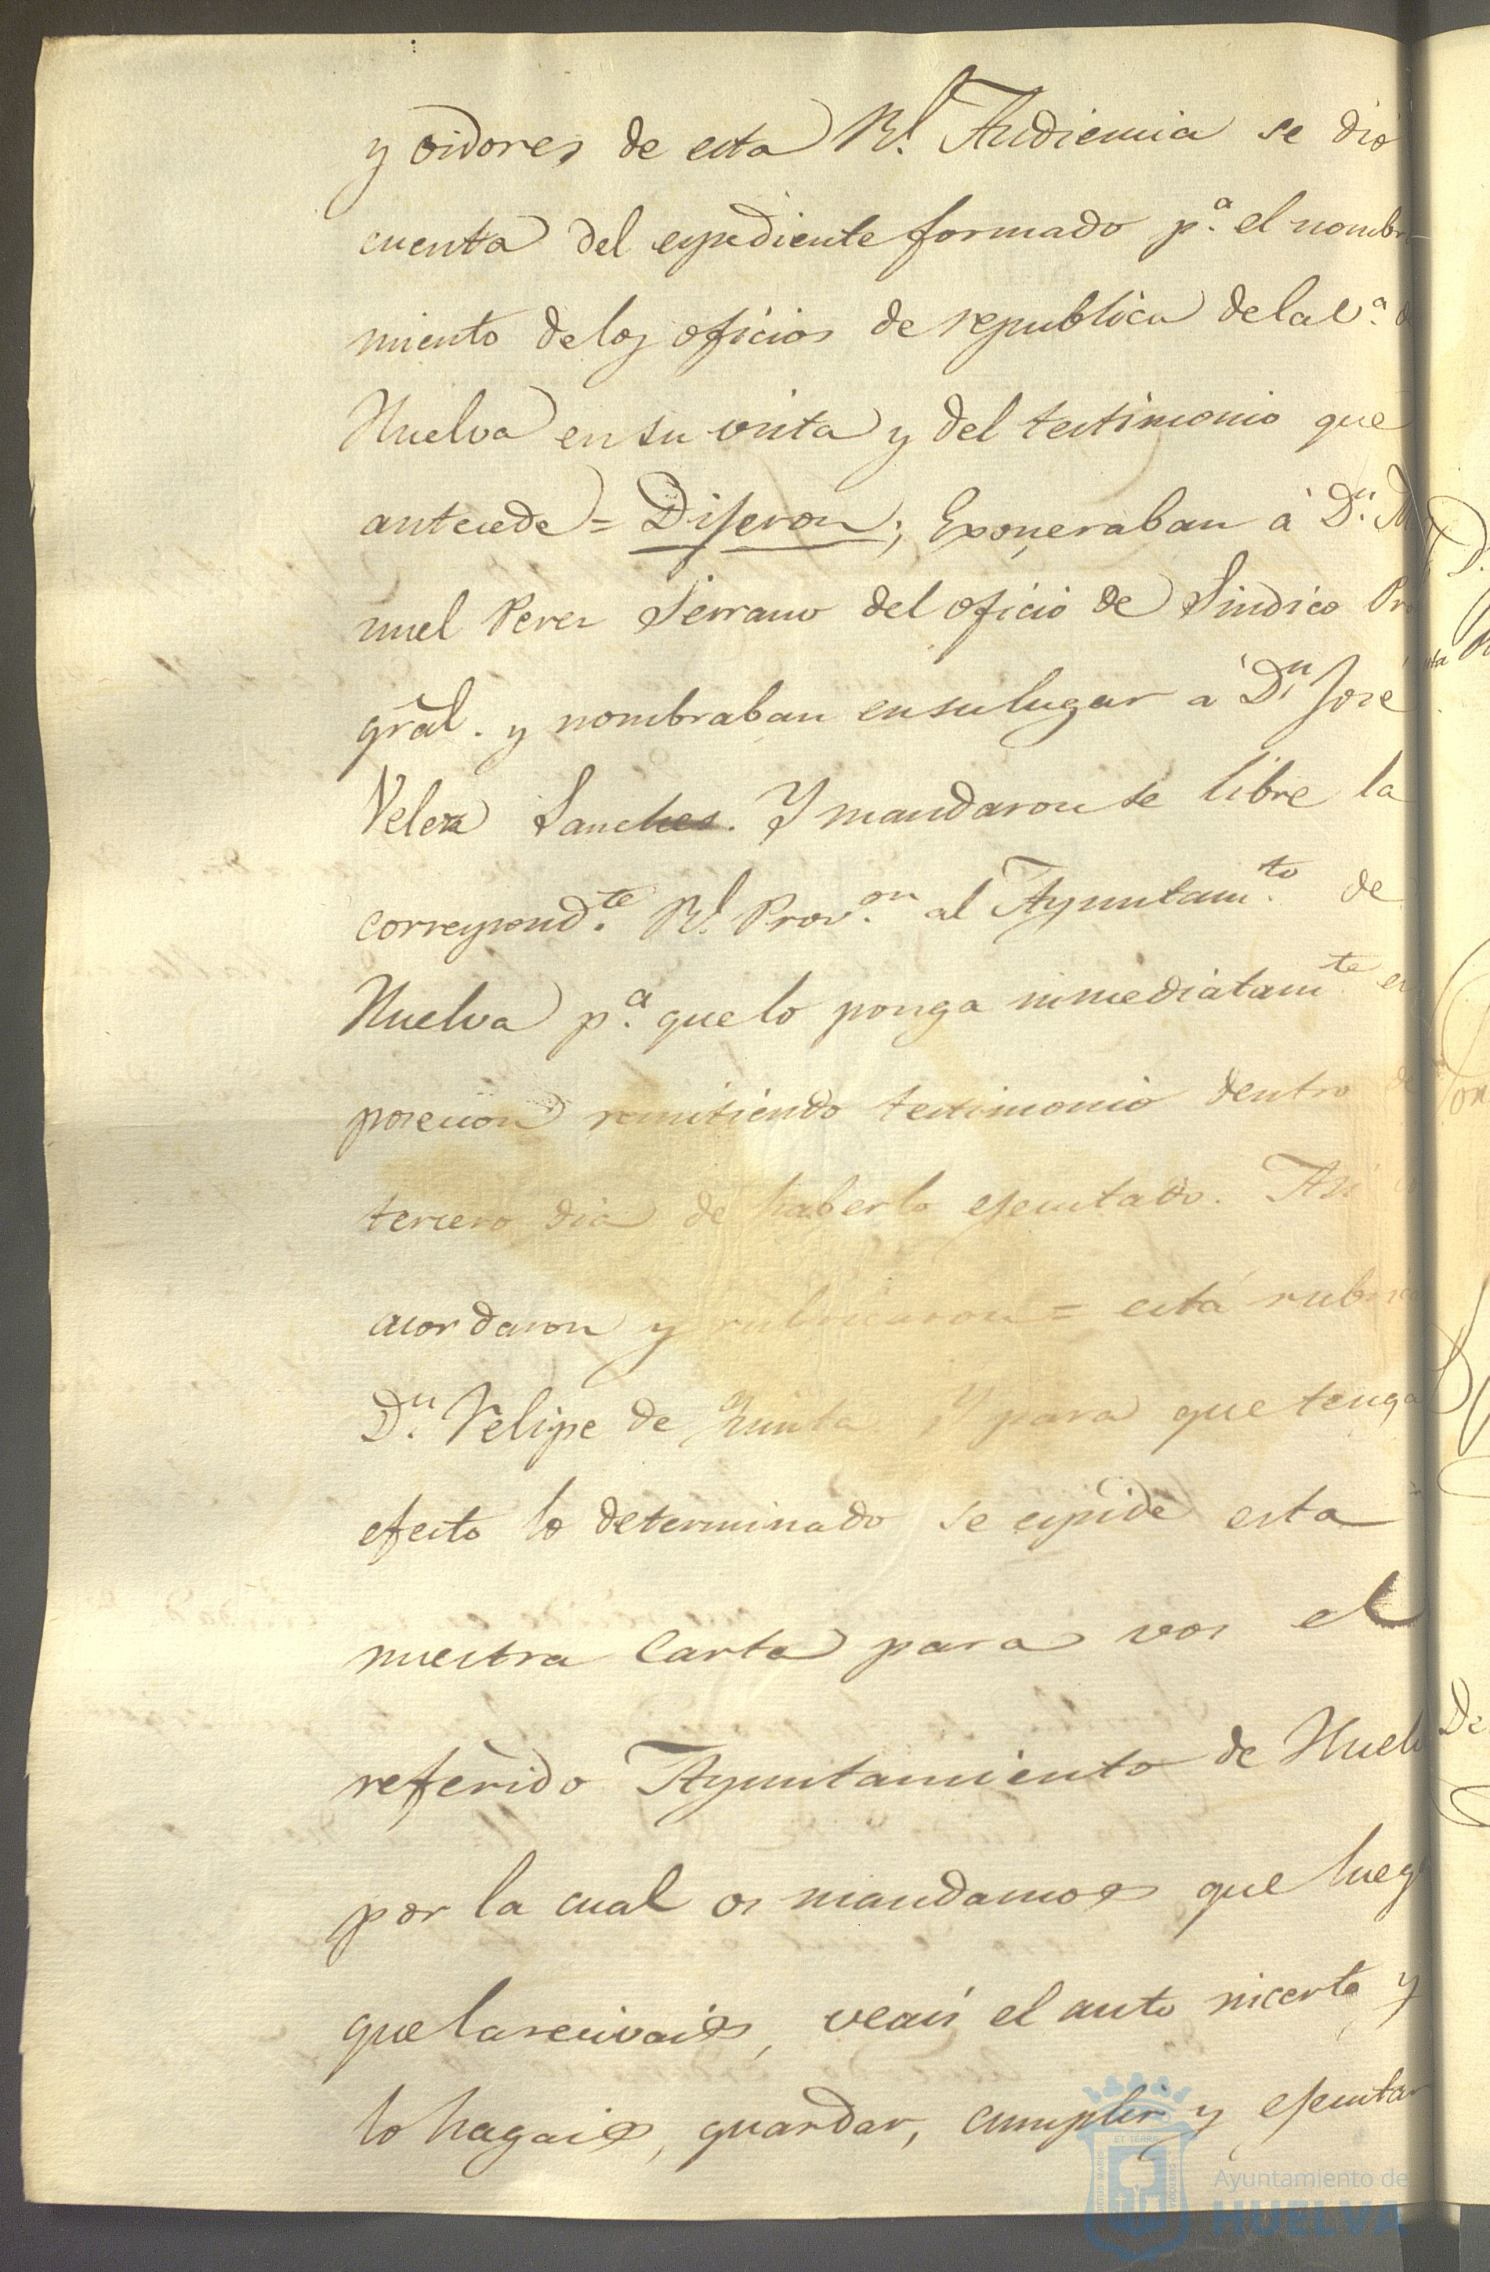 y oidores de esta Rl. Audiencia se dió
cuenta del espediente formado p.a el nombra
miento de los oficios de republica de la V.a d
Huelva en su vista y del testimonio que
antecede = Dijeron; Exoneraban á D.n Ma
nuel Perez Serrano del oficio de Sindico Pr
gral. y nombraban en su lugar a D.n José
Velez Sanches. Y mandaron se libre la
correspond.te Rl. Prov.on al Ayuntam.to de
Huelva p.a que lo ponga inmediatam.te en
posecion remitiendo testimonio dentro de
tercero dia de haberlo ejecutado. Asi lo
acordaron y rubricaron = está rubri
D.n Felipe de Zunta Y para que tenga
efecto lo determinado se espide esta
nuestra Carta para vos el
referido Ayuntamiento de Huelv
por la cual os mandamos que lueg
que la recivais, veais el auto incerto y
lo hagais, guardar, cumplir y ejecutar
Ayuntamiento de
HUELVA